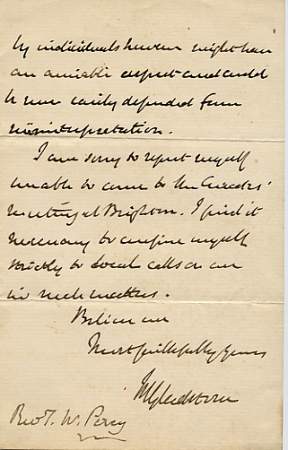 by individuals however might have
an amiable aspect and could
be more easily defended from
misinterpretation.
I am sorry to report myself
unable to come to the Curates'
meeting at Brighton. I find it
necessary to confine myself
strictly to local calls on me
in such matters.
Believe me
Most faithfully yours
WEGladstone
Revd T. W. Percy